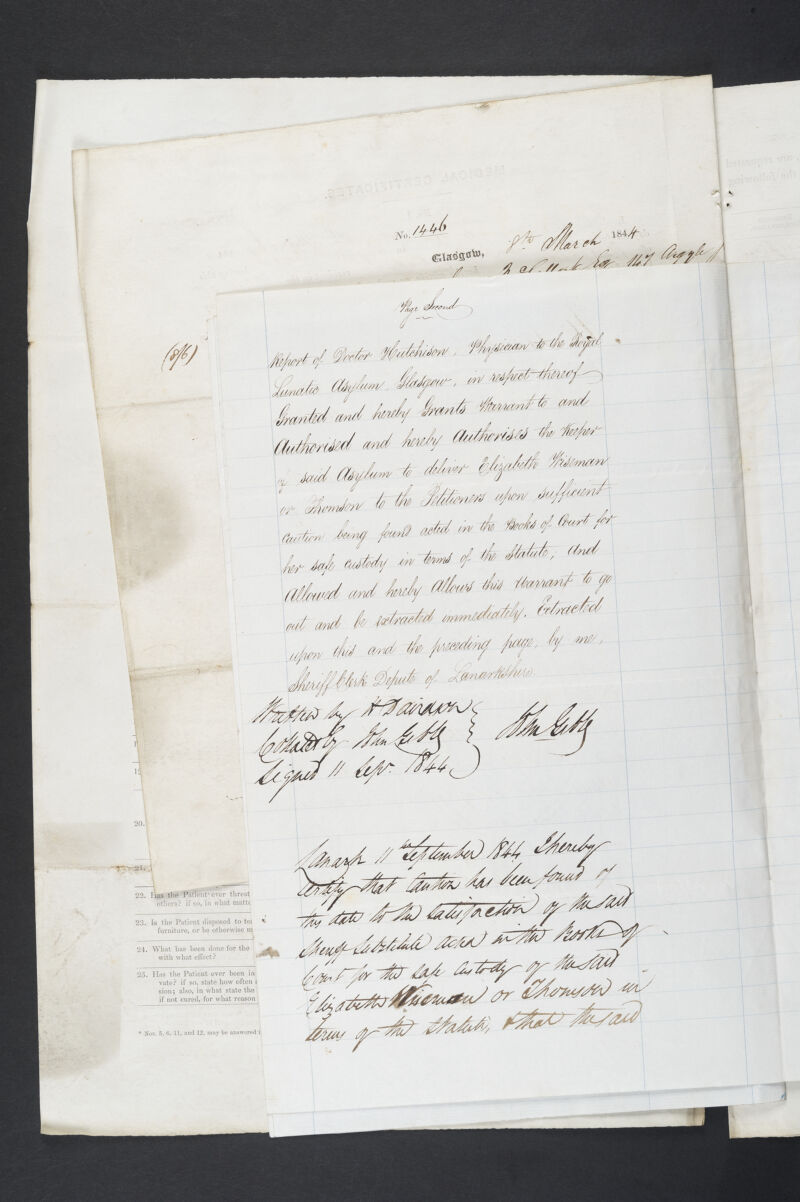 No. 1446
Glasgow, 8th March 1844
147 Argyle
(8/6)
Page Second
Report of Doctor Hutchison, Physician to the Royal
Lunatic Asylum, Glasgow, in respect thereof
Granted and hereby Grants Warrant to and
Authorised and hereby Authorises the Keeper
of said Asylum to deliver Elizabeth Wiseman
or Thomson to the Petitioners upon sufficient
Caution being found acted in the Books of Court for
her safe custody in terms of the Statute; And
Allowd and hereby Allows this Warrant to go
out and be extracted immediately. Extracted
upon this and the preceding page, by me,
Sheriff Clerk Depute of Lanarkshire
Written by
Collated by John Gibb
John Gibb
Signed 11 Sepr. 1844
Lanark 11th September 1844 I hereby
Certify that Caution has been found of
this date to the satisfaction of the said
Sheriff Substitute acted in the Books of
Court for the safe custody of the said
Elizabeth Wiseman or Thomson in
terms of the Statute, & that the said
20.
21.
22. Has the Patient ever threat
others? if so, in what mann
23. Is the Patient disposed to tea
furniture, or be otherwise m
24. What has been done for the
with what effect?
25. Has the Patient ever been in
vate? if so, state how often
sion; also, in what state the
if not cured, for what reason
* Nos. 5, 6, 11, and 12, may be answered
MEDICAL CERTIFICATES.
are requested
the following